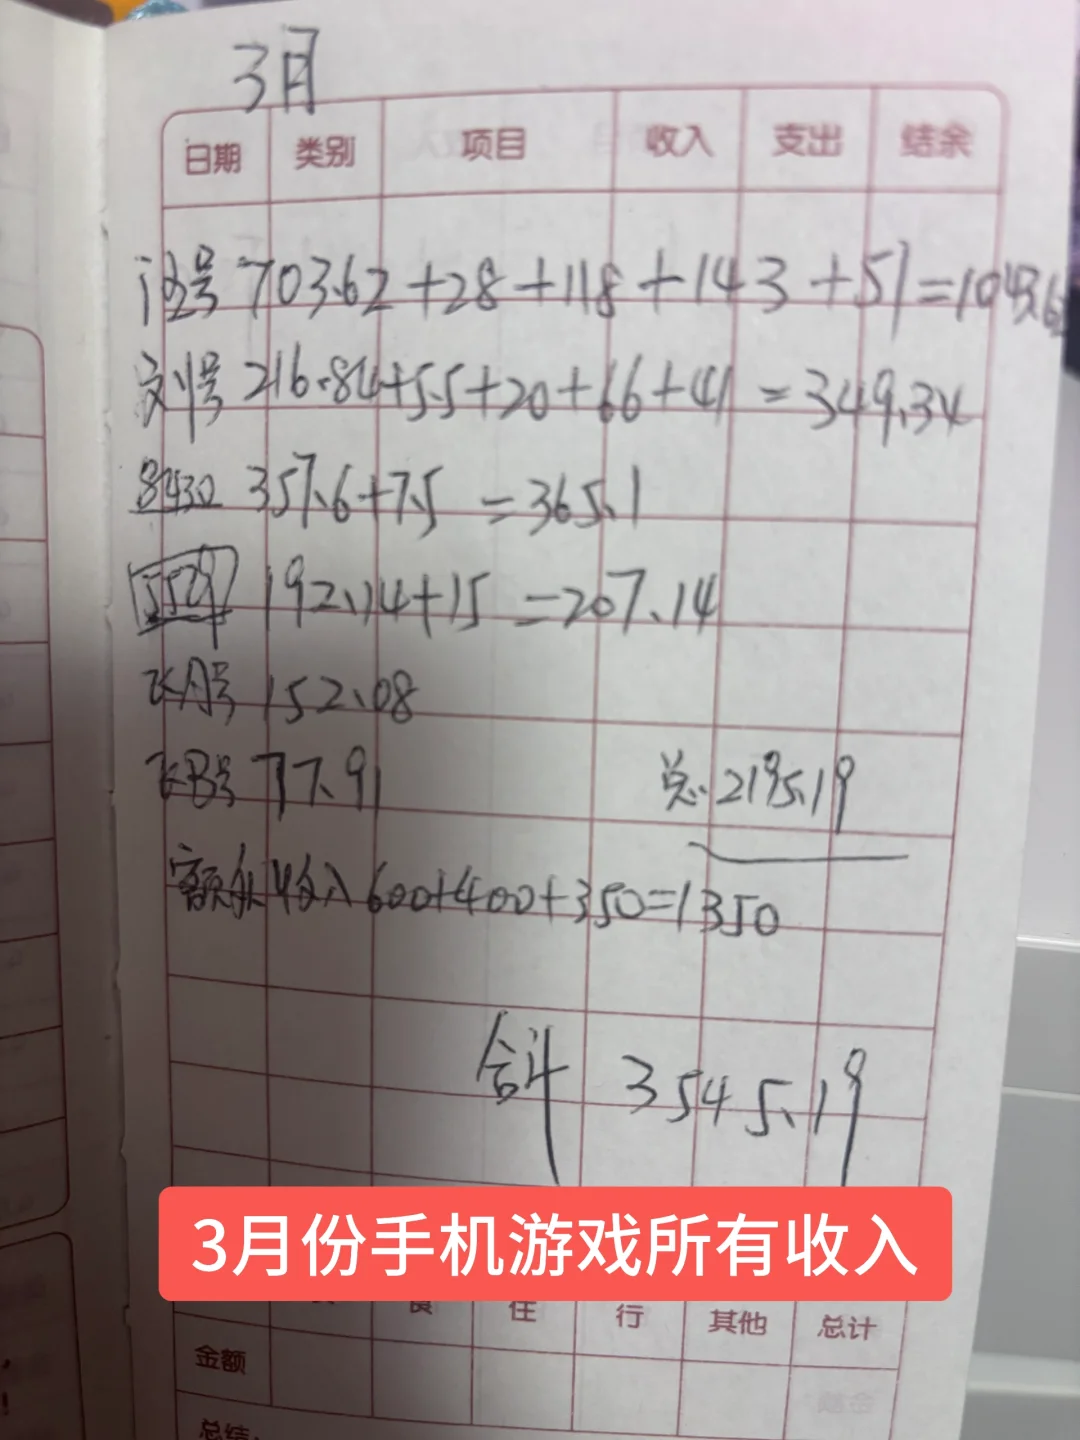 3月
日期 类别 项目 收入 支出 结余
号 703.62+28+118+143+51=1043.6
刘号 216.84+5.5+20+66+41=349.34
357.6+7.5=365.1
5529 192.14+15=207.14
飞A号 152.08
飞B号 77.91
总.2195.19
额外收入600+400+350=1350
合计 3545.19
3月份手机游戏所有收入
食 住 行 其他 总计
金额
总结: